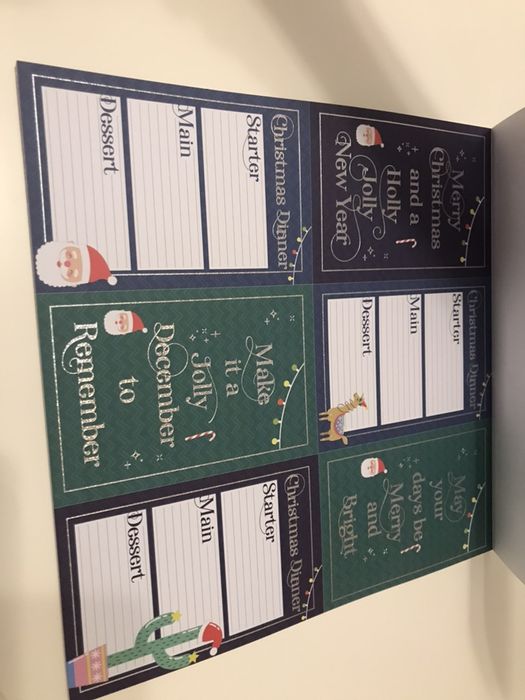 Merry
Christmas
and a
Holly
Jolly
New Year
Christmas Dinner
Starter
Main
Dessert
May
your
days be
Merry
and
Bright
Christmas Dinner
Starter
Main
Dessert
Make
it a
Jolly
December
to
Remember
Christmas Dinner
Starter
Main
Dessert